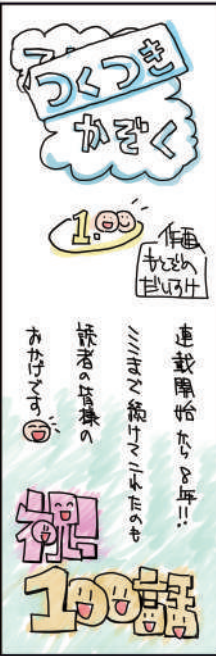 つくつき
かぞく
1.00
作画
もとどの
だいすけ
連載開始から8年!!
ここまで続けてこれたのも
読者の皆様の
おかげです
祝
100話